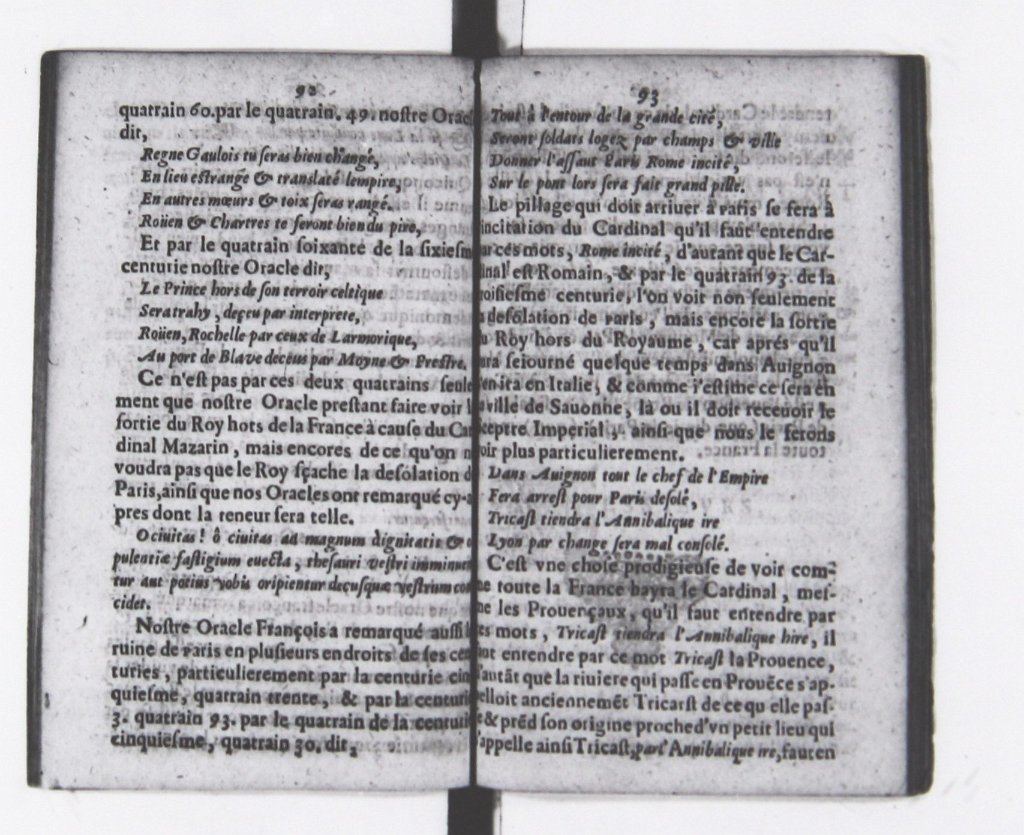 92
quatrain 60. par le quatrain. 49. nostre Orac
dit,
Regne Gaulois tu seras bien changé,
En lieu estrange & translaté lempire,
En autres mœurs & loix seras rangé.
Roüen & Chartres te feront bien du pire,
Et par le quatrain soixante de la sixiesm
centurie nostre Oracle dit,
Le Prince hors de son terroir celtique
Seratrahy, deçeu par interprete,
Roüen, Rochelle par ceux de Larmorique,
Au port de Blave deceus par Moyne & Prestre.
Ce n'est pas par ces deux quatrains seule
ment que nostre Oracle prestant faire voir l
sortie du Roy hors de la France à cause du Car
dinal Mazarin, mais encores de ce qu'on n
voudra pas que le Roy sçache la desolation d
Paris, ainsi que nos Oracles ont remarqué cy-a
pres dont la teneur sera telle.
O ciuitas! ô ciuitas ad magnum dignitatis & o
pulentiæ fastigium euecta, thesauri vestri imminuen
tur aut potius vobis oripientur decusquæ vestrum con
cidet.
Nostre Oracle François a remarqué aussi l
ruine de Paris en plusieurs endroits de ses cen
turies, particulierement par la centurie cin
quiesme, quatrain trente, & par la centurie
3. quatrain 93. par le quatrain de la centurie
cinquiesme, quatrain 30. dit,
93
Tout à l'entour de la grande cité,
Seront soldats logez par champs & ville
Donner l'assaut Paris Rome incité,
Sur le pont lors sera fait grand pille.
Le pillage qui doit arriuer à Paris se fera à
incitation du Cardinal qu'il faut entendre
ar ces mots, Rome incité, d'autant que le Car-
inal est Romain, & par le quatrain 93. de la
roisiesme centurie, l'on voit non seulement
a desolation de Paris, mais encore la sortie
u Roy hors du Royaume, car aprés qu'il
ura seiourné quelque temps dans Auignon
'en ira en Italie, & comme i'estime ce sera en
a ville de Sauonne, là ou il doit receuoir le
ceptre Imperial, ainsi que nous le ferons
oir plus particulierement.
Dans Auignon tout le chef de l'Empire
Fera arrest pour Paris desolé,
Tricast tiendra l'Annibalique ire
Lyon par change sera mal consolé.
C'est vne chose prodigieuse de voir com-
e toute la France hayra le Cardinal, mes-
me les Prouençaux, qu'il faut entendre par
es mots, Tricast tiendra l'Annibalique hire, il
aut entendre par ce mot Tricast la Prouence,
'autãt que la riuiere qui passe en Prouẽce s'ap-
elloit anciennemẽt Tricarst de ce qu elle pas-
e & prẽd son origine proche d'vn petit lieu qui
'appelle ainsi Tricast, par l'Annibalique ire, faut en